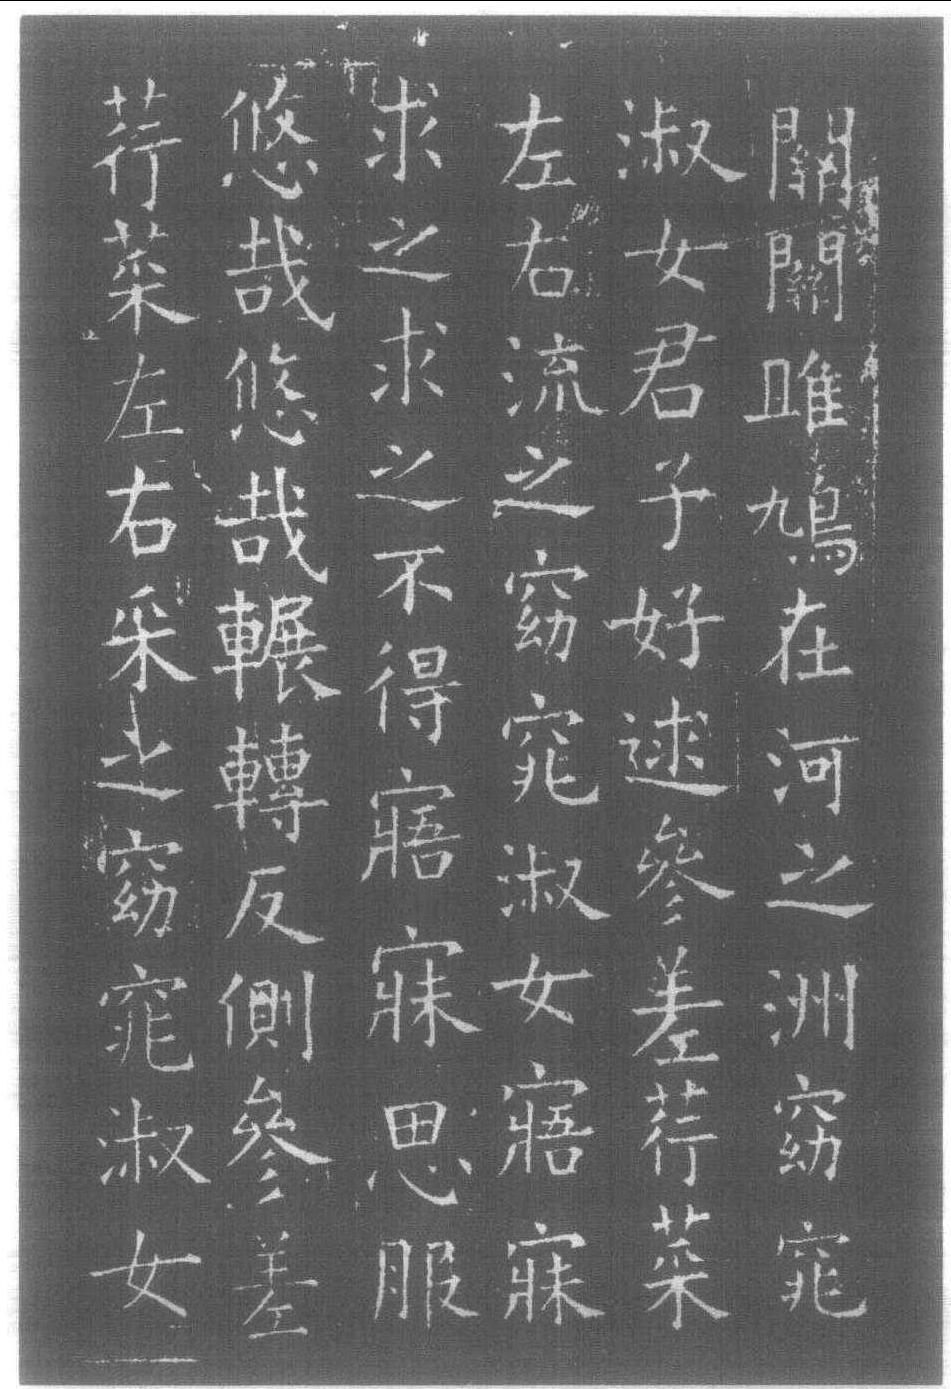 關關雎鳩在河之洲窈窕
淑女君子好逑參差荇菜
左右流之窈窕淑女寤寐
求之求之不得寤寐思服
悠哉悠哉輾轉反側參差
荇菜左右采之窈窕淑女